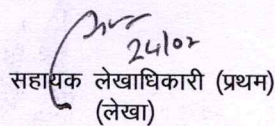 24/02
सहायक लेखाधिकारी (प्रथम)
(लेखा)